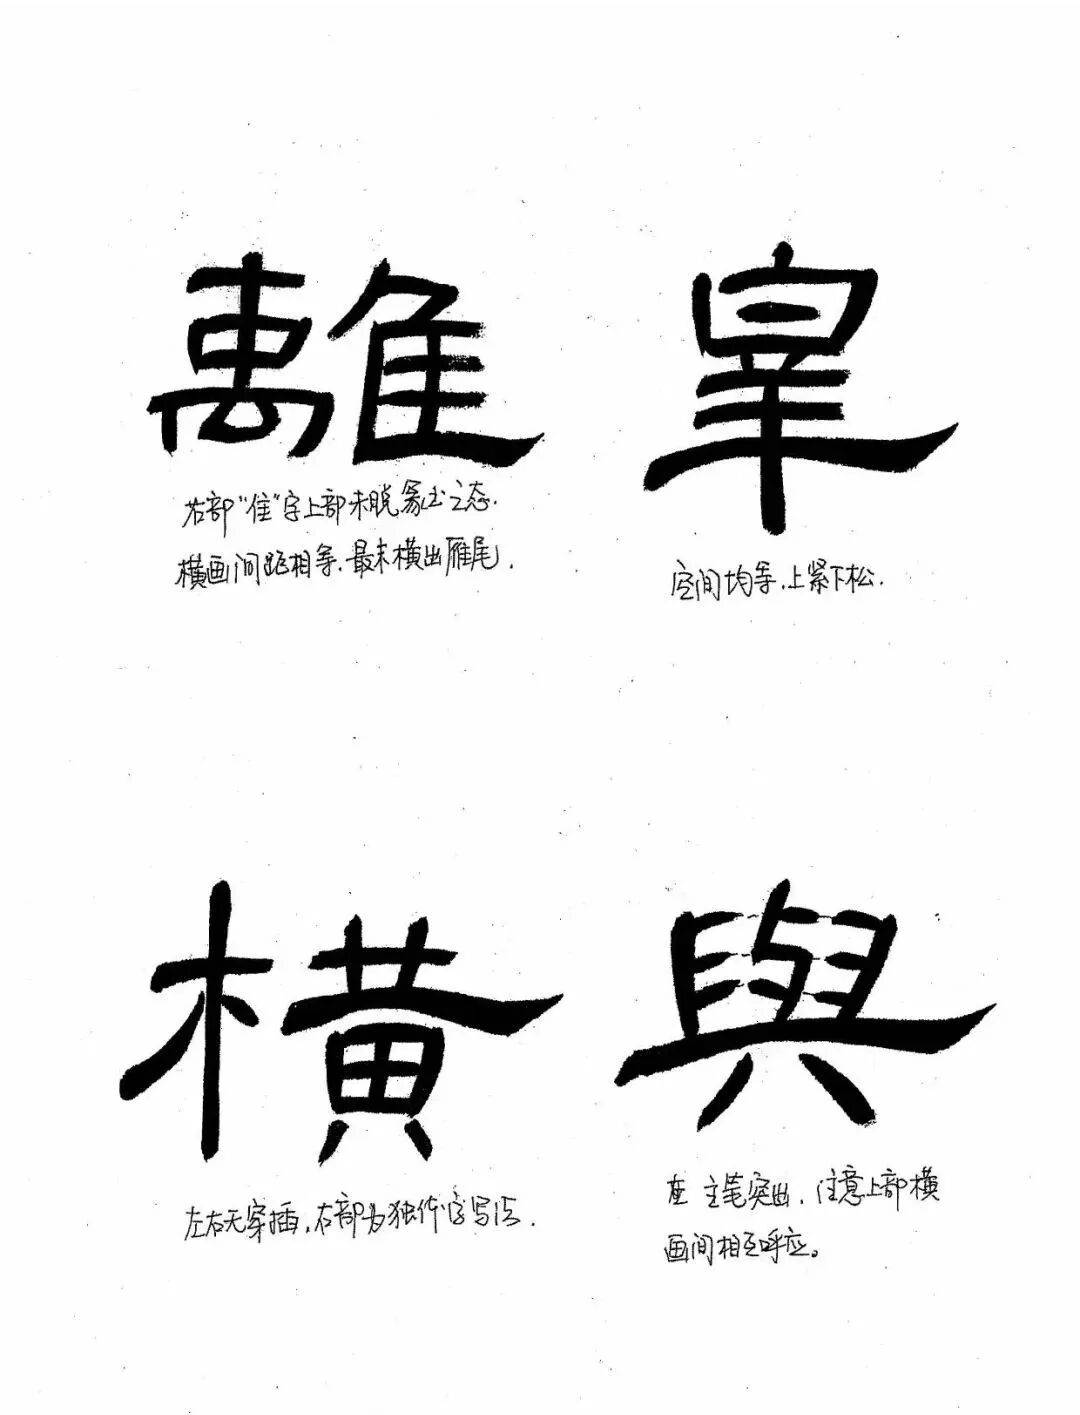 離
右部“隹”字上部未脱篆书之态.
横画间距相等.最末横出雁尾.
空间均等.上紧下松.
橫
左右无穿插,右部为独体字写法.
與
主笔突出.注意上部横
画间相互呼应。